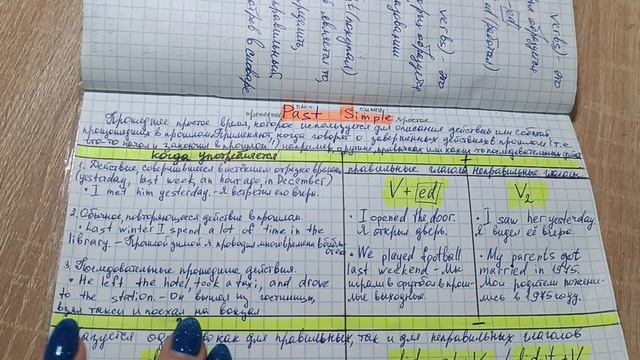 verbs) - это
verbs) - это
-ed
прошедшее Past Simple простое
Прошедшее простое время, которое используется для описания действий или событий,
прошедших в прошлом. Применяют, когда говорят о завершенных действиях в прошлом (т.е.
что-то началось и закончилось в прошлом),
когда употребляется
+
1. Действие, совершившееся в истекшем отрезке времени
(yesterday, last week, an hour ago, in December)
• I met him yesterday. - Я встретил его вчера.
2. Обычное, повторяющееся действие в прошлом.
• Last winter I spend a lot of time in the
library. - Прошлой зимой я проводил много времени в
3. Последовательные прошедшие действия.
• He left the hotel, took a taxi, and drove
to the station. - Он вышел из гостиницы,
взял такси и поехал на вокзал
правильные глаголы
V + ed
• I opened the door.
Я открыл дверь.
• We played football
last weekend - Мы
играли в футбол в прош-
лые выходные.
Неправильные глаголы
V2
• I saw her yesterday
Я видел её вчера.
• My parents got
married in 1975.
Мои родители пожени-
лись в 1975 году.
–
как для правильных, так и для неправильных глаголов